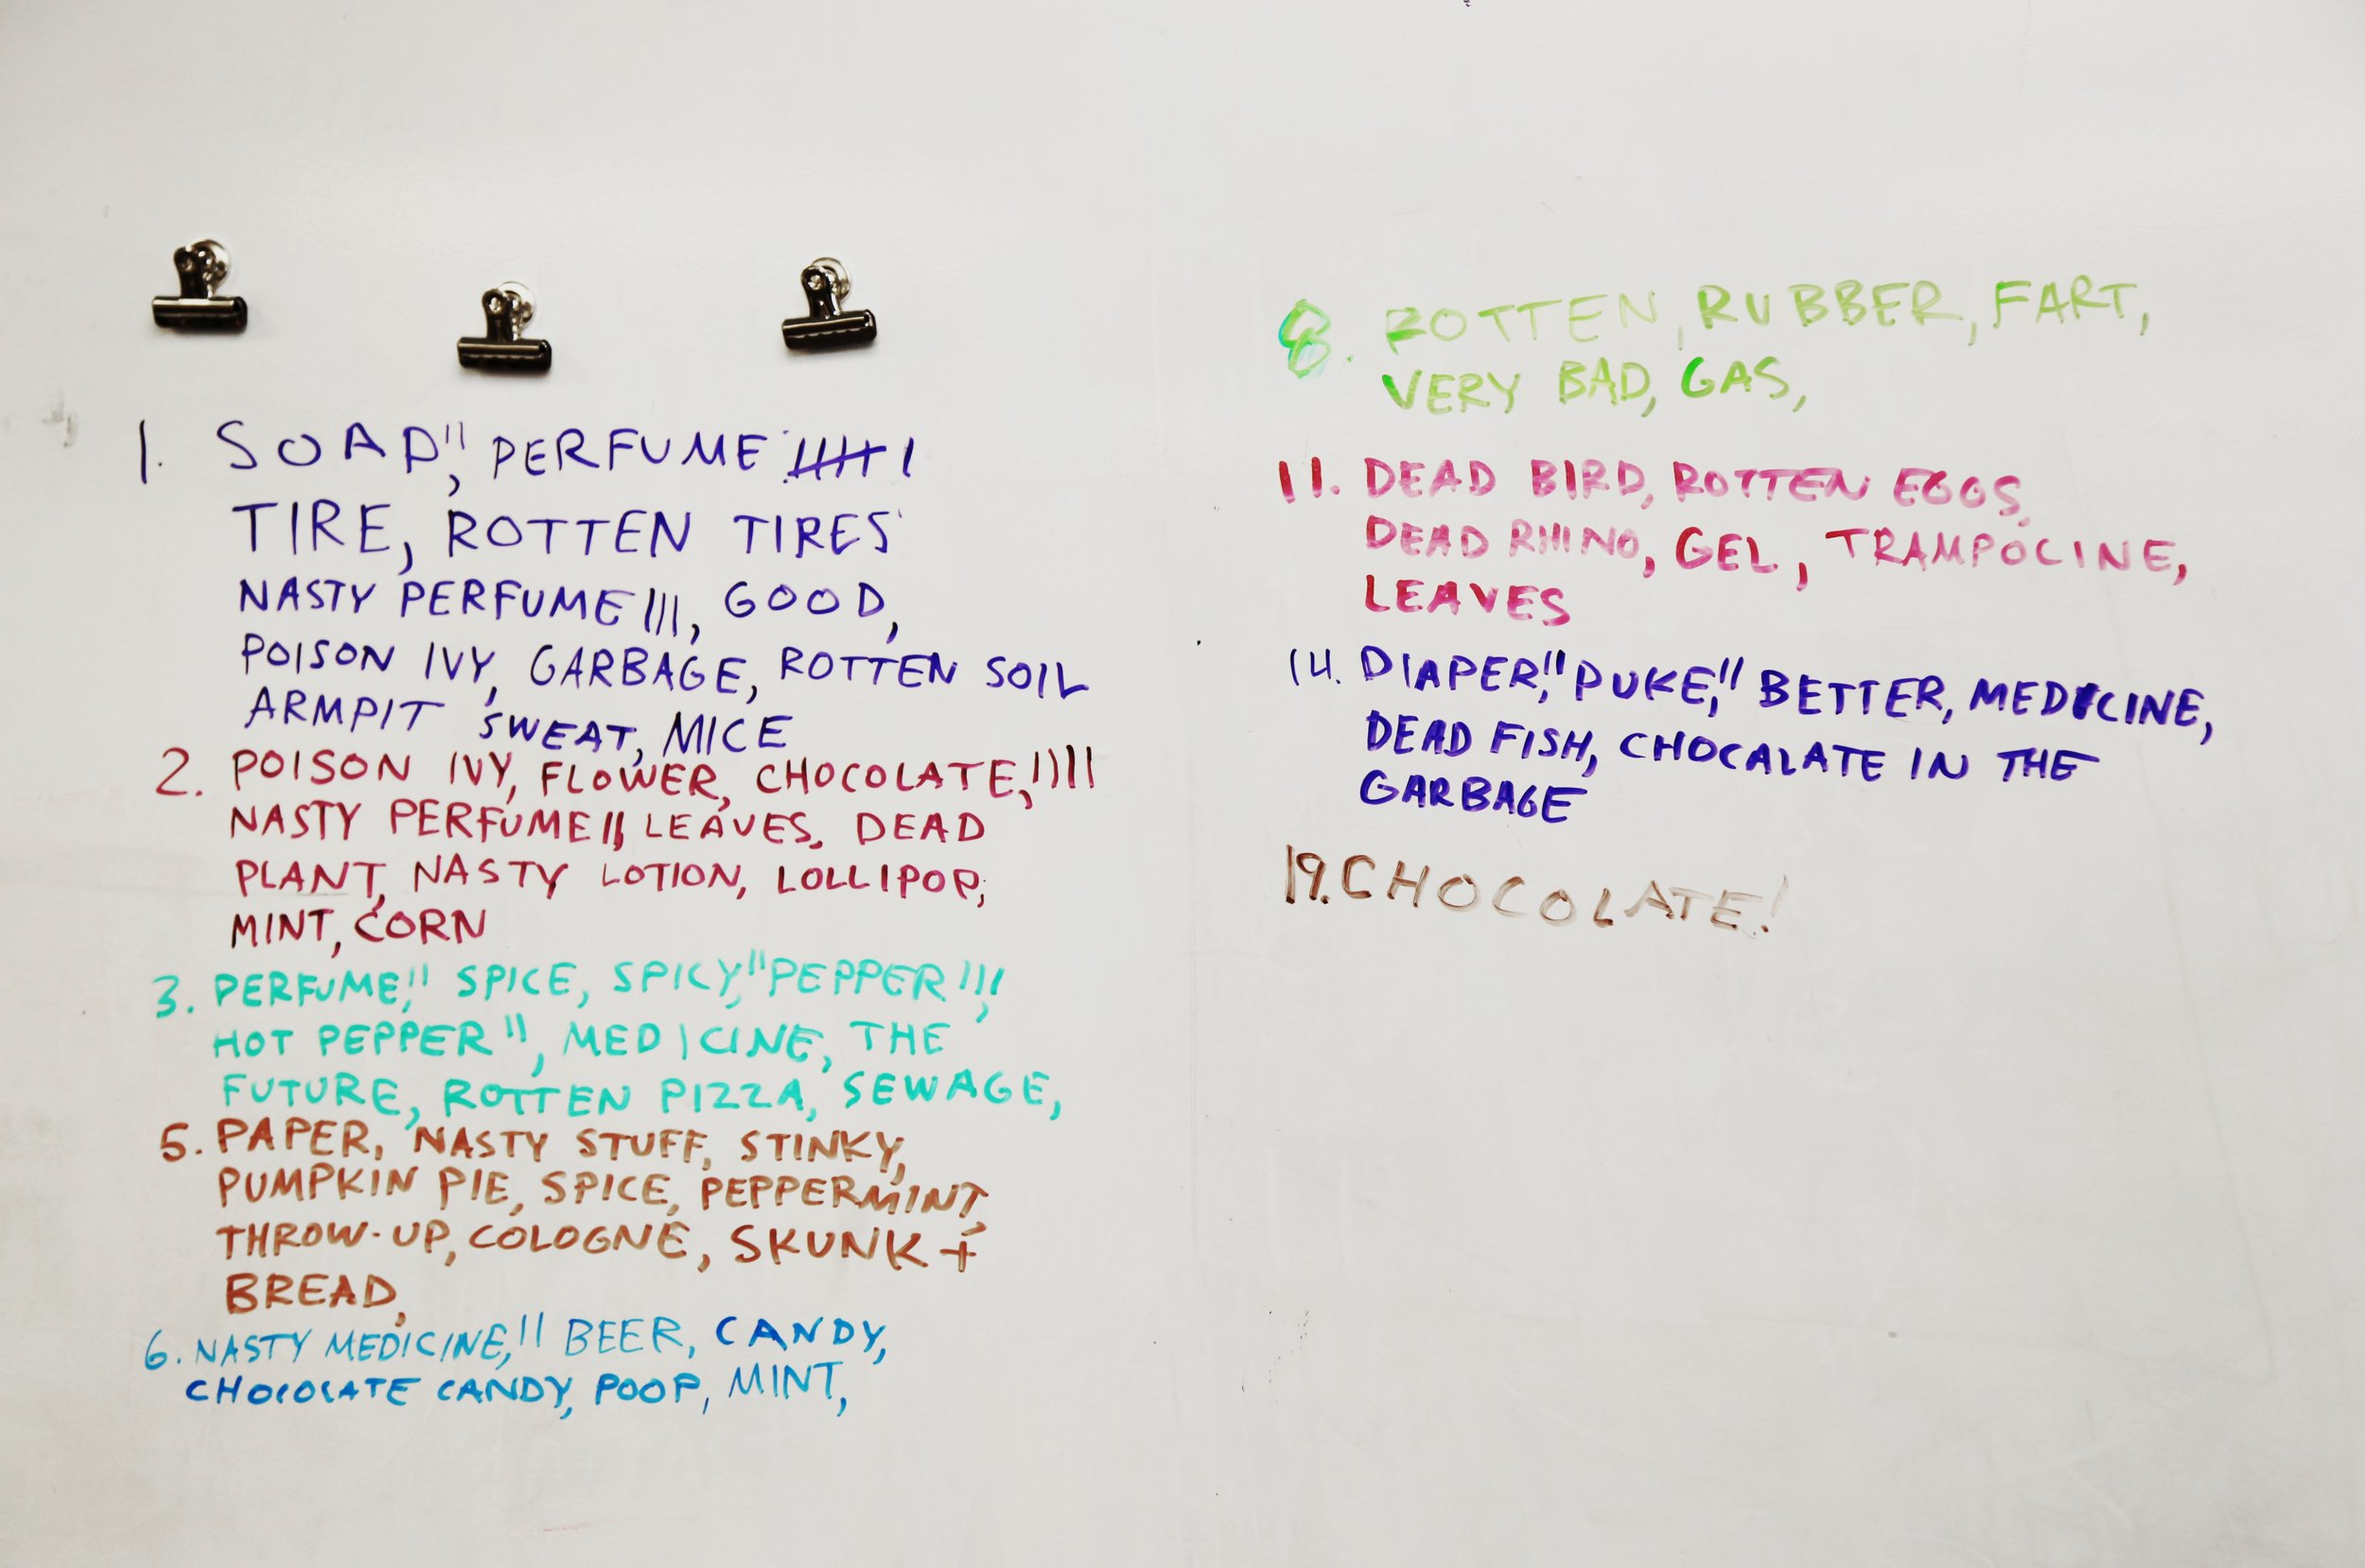 1. SOAP", PERFUME 卌 I
TIRE, ROTTEN TIRES
NASTY PERFUME |||, GOOD,
POISON IVY, GARBAGE, ROTTEN SOIL
ARMPIT SWEAT, MICE
2. POISON IVY, FLOWER, CHOCOLATE, ||||
NASTY PERFUME ||, LEAVES, DEAD
PLANT, NASTY LOTION, LOLLIPOP,
MINT, CORN
3. PERFUME," SPICE, SPICY," PEPPER |||,
HOT PEPPER ", MEDICINE, THE
FUTURE, ROTTEN PIZZA, SEWAGE,
5. PAPER, NASTY STUFF, STINKY,
PUMPKIN PIE, SPICE, PEPPERMINT,
THROW-UP, COLOGNE, SKUNK +
BREAD,
6. NASTY MEDICINE, || BEER, CANDY,
CHOCOLATE CANDY, POOP, MINT,
8. ROTTEN, RUBBER, FART,
VERY BAD, GAS,
11. DEAD BIRD, ROTTEN EGGS,
DEAD RHINO, GEL, TRAMPOCINE,
LEAVES
14. DIAPER," PUKE," BETTER, MEDICINE,
DEAD FISH, CHOCALATE IN THE
GARBAGE
19. CHOCOLATE!